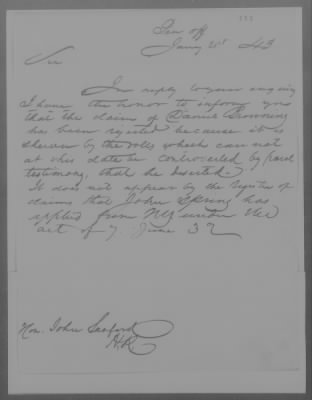 Pen Off
Jany 21st 43
Sir
In reply to your inquiry
I have the honor to inform you
that the claim of Daniel Browning
has been rejected because it is
shewn by the rolls which can not
at this date be controverted by parol
testimony, that he deserted.
It does not appear by the register of
claims that John Spring has
applied from NY under the
act of 7. June 32
Hon. John Sanford
H.R.